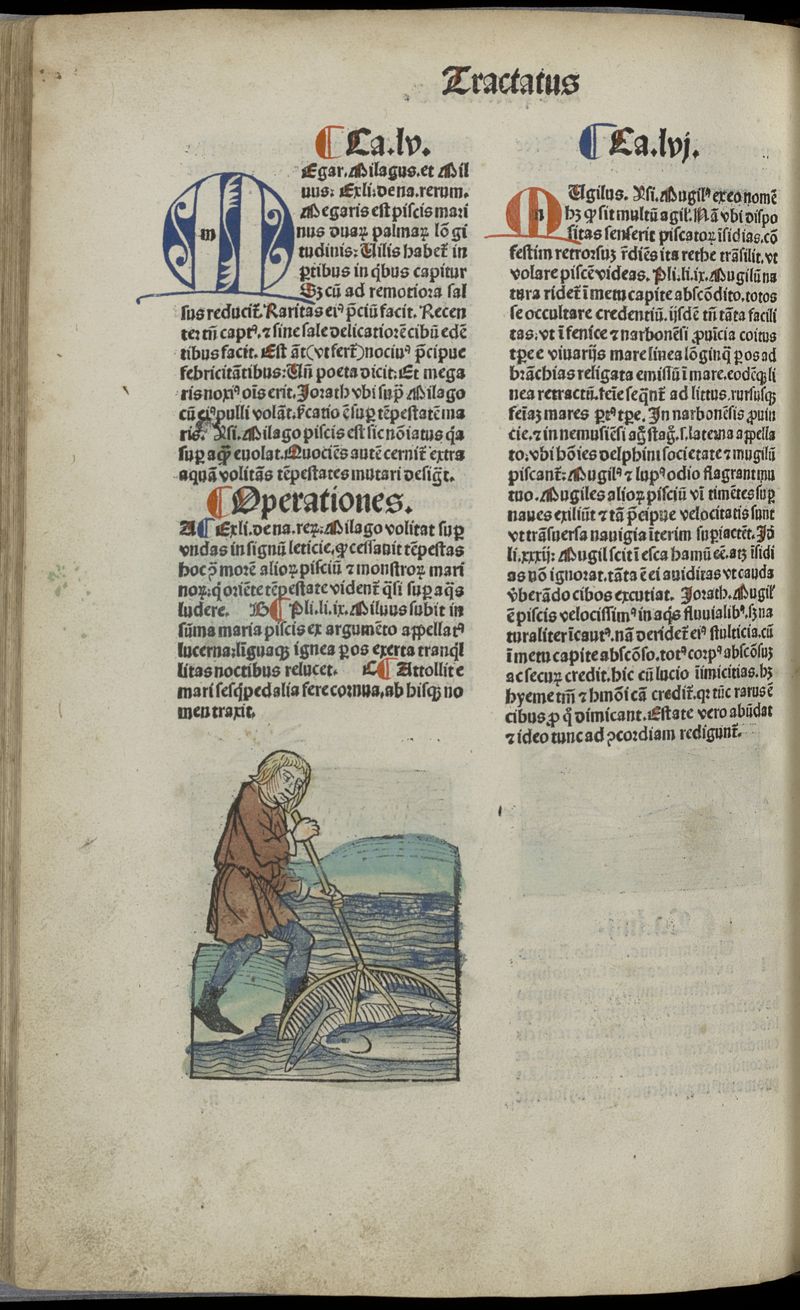 Tractatus
Ca.lv.
Egar. Milagus. et Mil
uus: Ex li. de na. rerum.
Megaris est piscis mari
nus duaꝝ palmaꝝ lō gi
tudinis: Uilis habet̄ in
ꝑtibus in qͥbus capitur
Sꝫ cū ad remotiora sal
sus reducit̄. Raritas eiꝰ p̄ciū facit. Recen
ter tn̄ captꝰ. ⁊ sine sale delicatiorē cibū edē
tibus facit. Est āt (vt fert̄) nociuꝰ p̄cipue
febricitātibus: Un̄ poeta dicit: Et mega
ris noxiꝰ oīs erit. Jorath vbi supͣ Milago
cū eiꝰ pulli volāt. ē suꝑ tēpestatē ma
ris. Milago piscis est sic nōiatus qͥa
suꝑ aquā euolat. Quociēs autē cernit̄ extra
aquā volitās tēpestates mutari desigt̄.
Operationes.
A Ex li. de na. reꝝ: Milago volitat suꝑ
vndas in signū leticie, ꝙ cessauit tēpestas
hoc morē alioꝝ pisciū ⁊ monstroꝝ mari
noꝝ: qͥ oriēte tēpestate vident̄ qͣsi suꝑ aqͣs
ludere. B Pli. li. ix. Miluus subit in
sūma maria piscis ex argumēto appellatꝰ
lucerna: līguaqꝫ ignea ꝑ os exerta tranqͥl
litas noctibus relucet. C Attollit e
mari sesqͥpedalia fere cornua, ab hisqꝫ no
men traxit.
Ca.lvj.
m
n
Ugilus. Mugilꝰ ex eo nomē
hꝫ ꝙ sit multū agil. Nā vbi dispo
sitas senserit piscatoꝝ īsidias. cō
festim retrorsuꝫ r̄diēs ita rethe trāsilit. vt
volare piscē videas. Pli. li. ix. Mugilū na
tura ridet̄ ī metu capite abscōdito. totos
se occultare credentiū. ijsdē tn̄ tāta facili
tas. vt ī fenice ⁊ narbonēsi ꝓuīcia coitus
tꝑe e viuarijs mare linea lōgīqͣ ꝑ os ad
brāchias religata emissū ī mare. eodēqꝫ li
nea retractū. feīe seqͣnt̄ ad littus. rursusqꝫ
feīaꝫ mares ꝑtꝰ tꝑe. In narbonēsis ꝓuin
cie. ⁊ in nemusiēsi stag̃. s. laterna appella
to. vbi hōies delphini societate ⁊ mugilū
piscant̄: Mugilꝰ ⁊ lupꝰ odio flagrant mu
tuo. Mugiles alioꝝ pisciū vī timētes suꝑ
naues exiliūt ⁊ tā p̄cipue velocitatis sunt
vt trāsuersa nauigia īterim suꝑiactēt. Jd̄
li. xxxij: Mugil scit ī esca hamū eē. atꝫ īsidi
as nō ignorat. tāta ē ei auiditas vt cauda
v̄berādo cibos excutiat. Jorath. Mugil
ē piscis velocissimꝰ in aqͥs fluuialibꝰ. sꝫ na
turaliter īcautꝰ. nā deridet̄ eiꝰ stulticia. cū
ī metu capite abscōso. totꝰ corpꝰ abscōsuꝫ
ac secuꝝ credit. hic cū lucio īimicitias. hꝫ
hyeme tm̄ ⁊ hmōi cā credit̄. qꝛ tūc rarus ē
cibus ꝓ qͦ dimicant. Estate vero abūdat
⁊ ideo tunc ad ꝯcordiam redigunt̄.